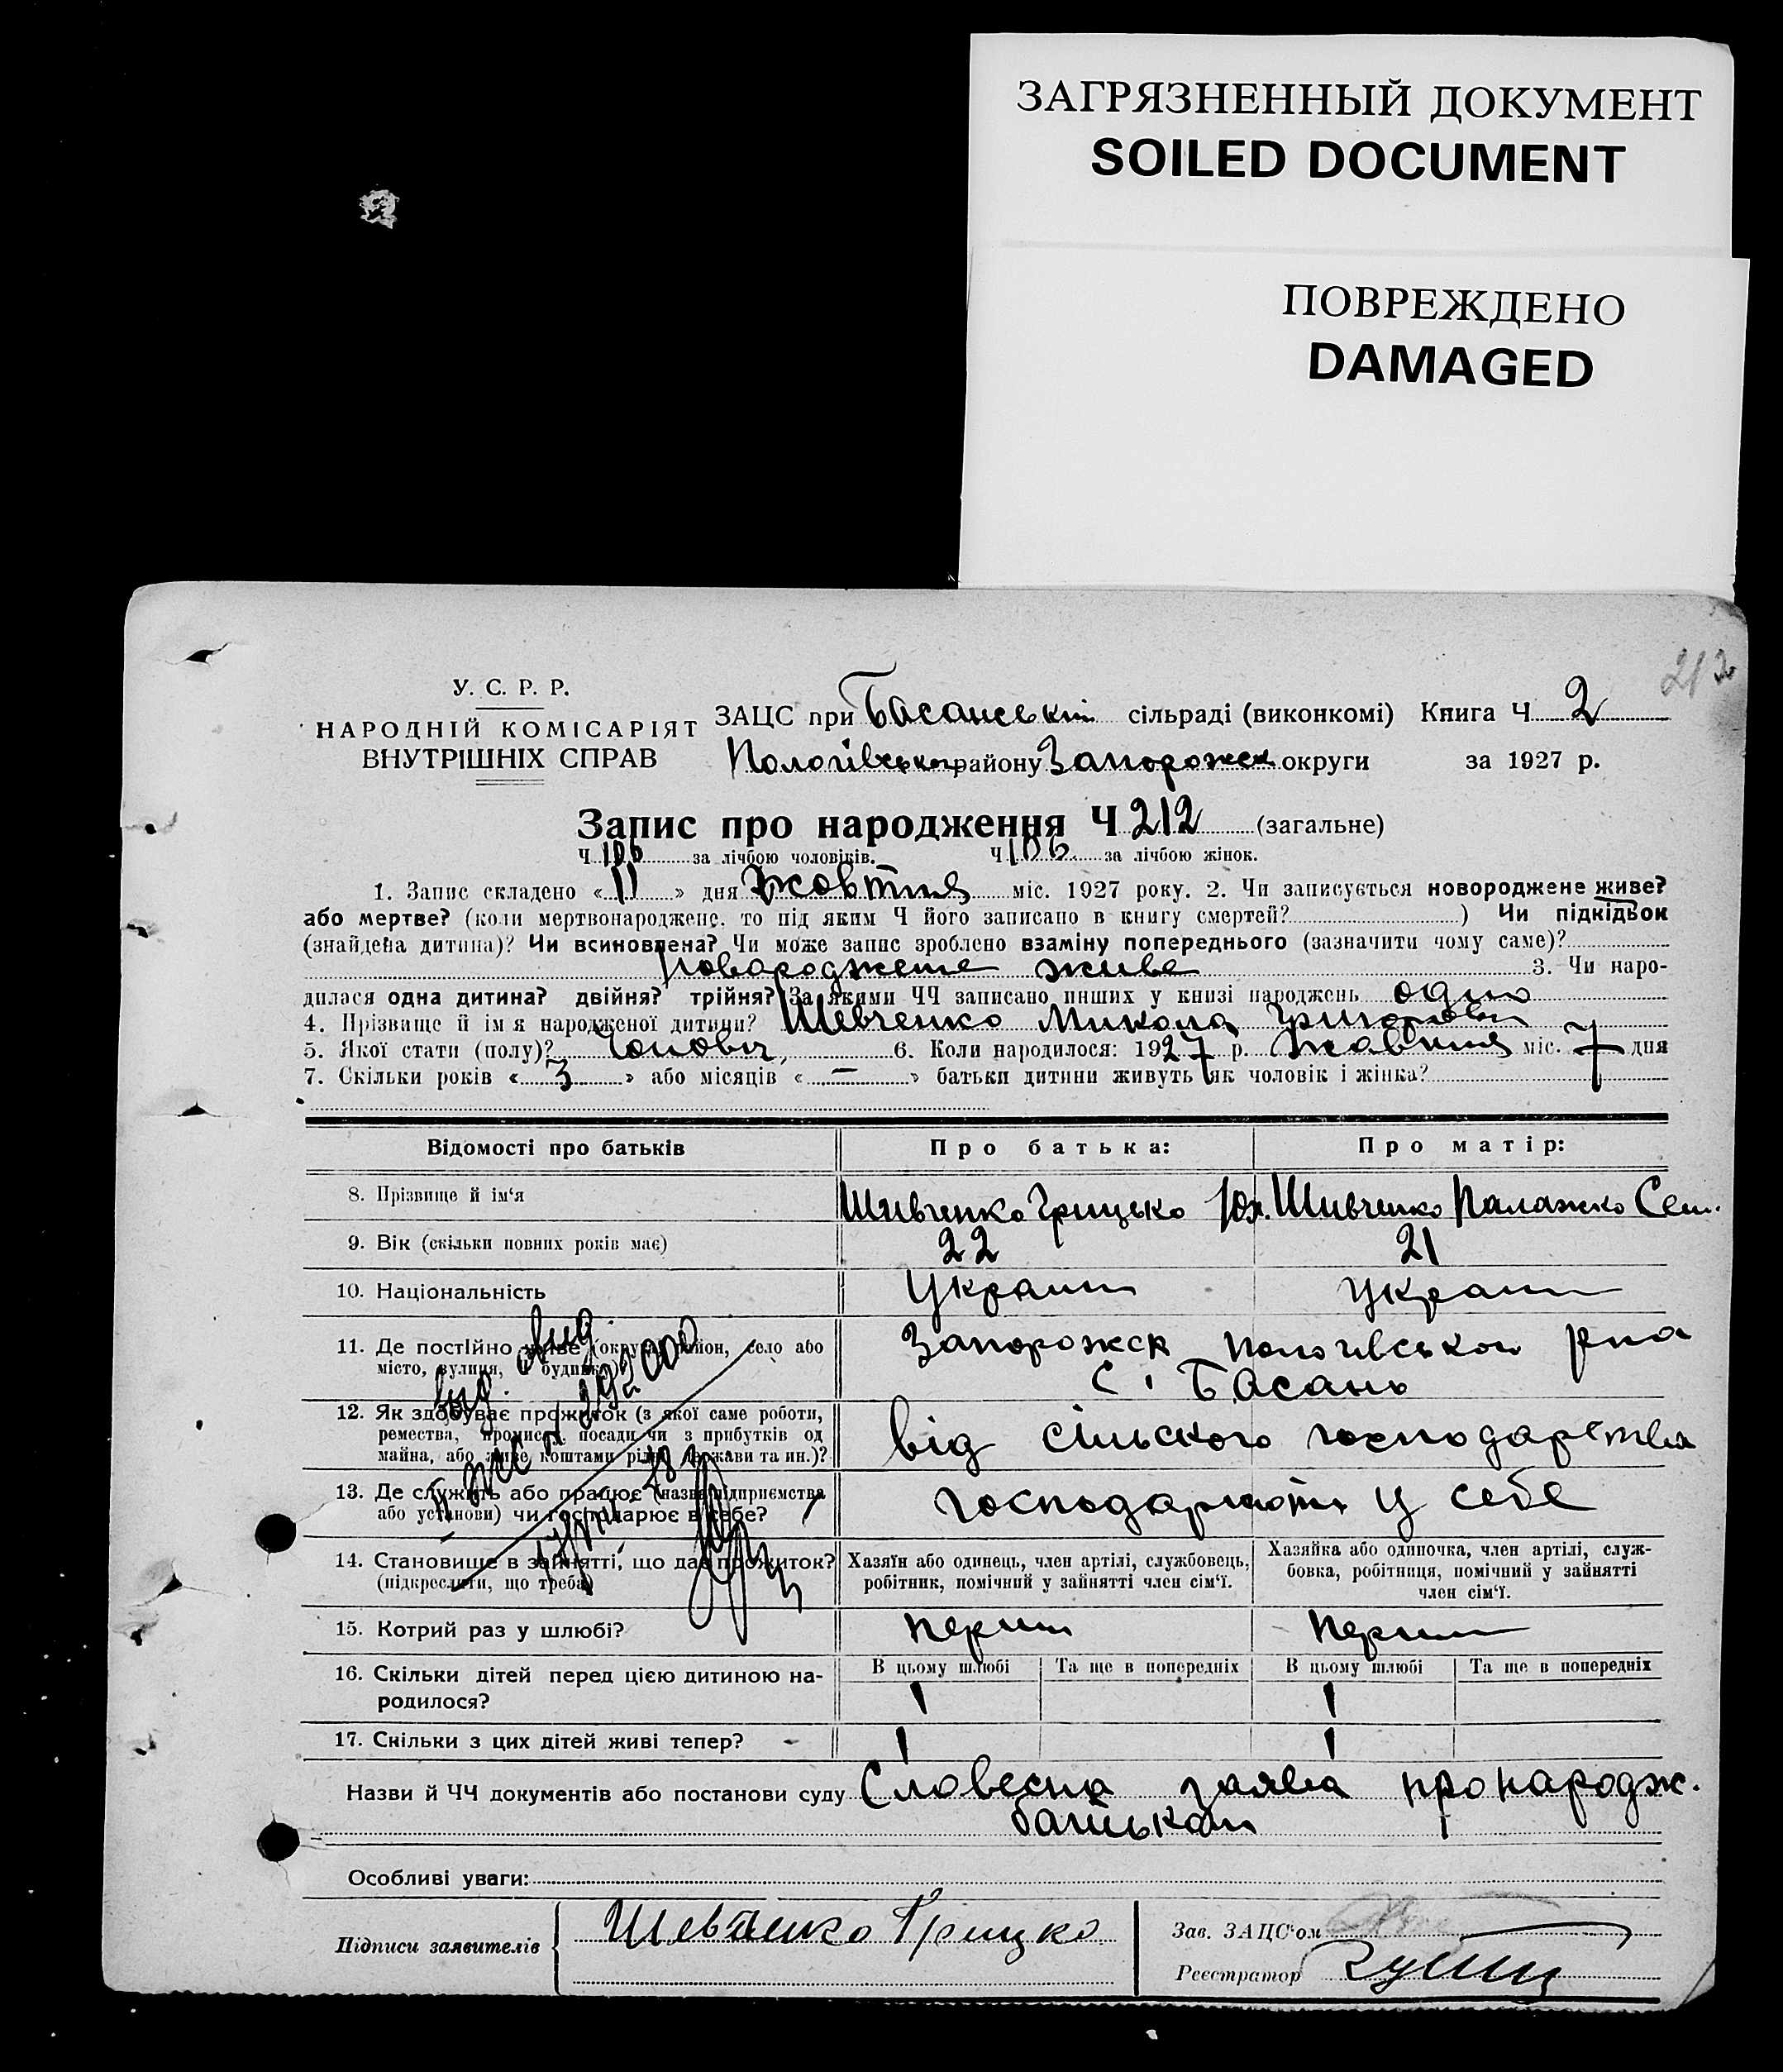 ЗАГРЯЗНЕННЫЙ ДОКУМЕНТ
SOILED DOCUMENT
ПОВРЕЖДЕНО
DAMAGED
212
У. С. Р. Р.
НАРОДНІЙ КОМІСАРІЯТ
ВНУТРІШНІХ СПРАВ
ЗАЦС при Басанській сільраді (виконкомі) Книга Ч 2
Пологівського району Запорожск округи за 1927 р.
Запис про народження Ч 212 (загальне)
Ч 106 за лічбою чоловіків. Ч 106 за лічбою жінок.
1. Запис складено «11» дня Жовтня міс. 1927 року. 2. Чи записується новороджене живе?
або мертве? (коли мертвонароджене, то під яким Ч його записано в книгу смертей? ) Чи підкідьок
(знайдена дитина)? Чи всиновлена? Чи може запис зроблено взаміну попереднього (зазначити чому саме)?
новароджене живе 3. Чи наро-
дилася одна дитина? двійня? трійня? За якими ЧЧ записано инших у книзі народжень одно
4. Прізвище й ім'я народженої дитини? Шевченко Микола Григорович
5. Якої стати (полу)? Чоловіч, 6. Коли народилося: 1927 р. Жовтня міс. 7 дня
7. Скільки років «3» або місяців «—» батьки дитини живуть як чоловік і жінка?
Відомості про батьків Про батька: Про матір:
8. Прізвище й ім'я Шивченко Грицько Юх. Шивченко Палажко Сем.
9. Вік (скільки повних років має) 22 21
10. Національність Украин Украин
11. Де постійно живе (округа, район, село або Запорожск Пологівського р-на
місто, вулиця, будинок) с. Басань
12. Як здобуває прожиток (з якої саме роботи,
ремества, промисла, посади чи з прибутків од від сільского господарства
майна, або живе коштами рідні, держави та ин.)?
13. Де служить або працює (назва підприємства господарюють у себе
або установи) чи господарює в себе?
14. Становище в зайнятті, що дає прожиток? Хазяїн або одинець, член артілі, службовець, Хазяйка або одиночка, член артілі, служ-
(підкреслити, що треба) робітник, помічний у зайнятті член сім'ї. бовка, робітниця, помічний у зайнятті
член сім'ї.
15. Котрий раз у шлюбі? перши перши
16. Скільки дітей перед цією дитиною на- В цьому шлюбі Та ще в попередніх В цьому шлюбі Та ще в попередніх
родилося? 1 1
17. Скільки з цих дітей живі тепер? 1 1
Назви й ЧЧ документів або постанови суду Словесна заява про народж.
батькам
Особливі уваги:
Підписи заявителів Шевченко Грицко
Зав. ЗАЦС'ом
Реєстратор